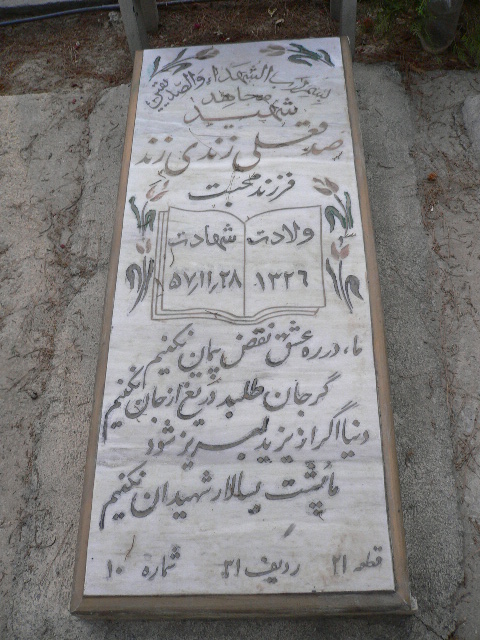 بسم رب الشهداء و الصدیقین
مجاهد
شهید
صدقعلی زندی زند
فرزند محبت
ولادت شهادت
۱۳۲۶ ۵۷٫۱۱٫۲۸
ما، در ره عشق نقض پیمان نکنیم
گر جان طلبد دریغ از جان نکنیم
دنیا اگر از یزید لبریز شود
ما پشت بسالار شهیدان نکنیم
قطعه ۲۱ ردیف ۳۱ شماره ۱۰